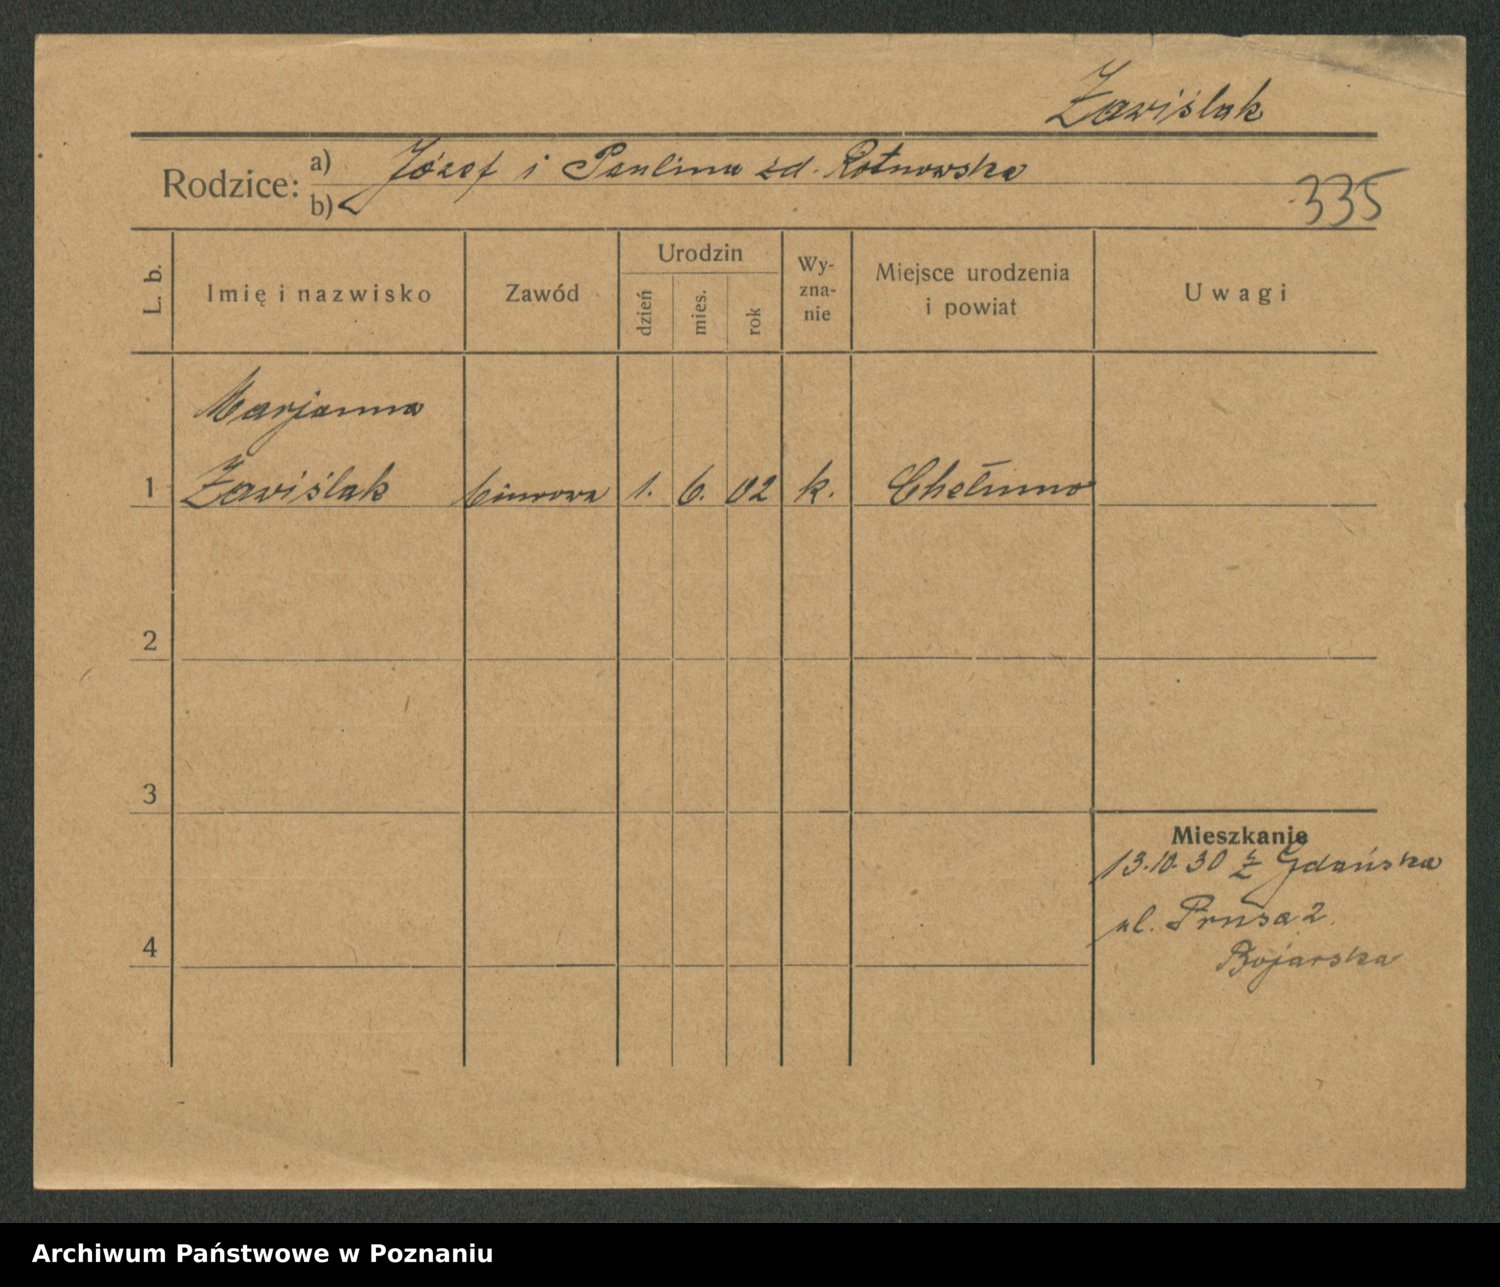 Zawiślak
Rodzice: a) Józef i Paulina zd. Rotnowska
b)
335
L. b.
Imię i nazwisko
Zawód
Urodzin
dzień
mies.
rok
Wy-
zna-
nie
Miejsce urodzenia
i powiat
Uwagi
Marjanna
1 Zawiślak biurowa 1. 6. 02 k. Chełmno
2
3
Mieszkanie
13.10.30 z Gdańska
ul. Prusa 2.
4
Bojarska
Archiwum Państwowe w Poznaniu